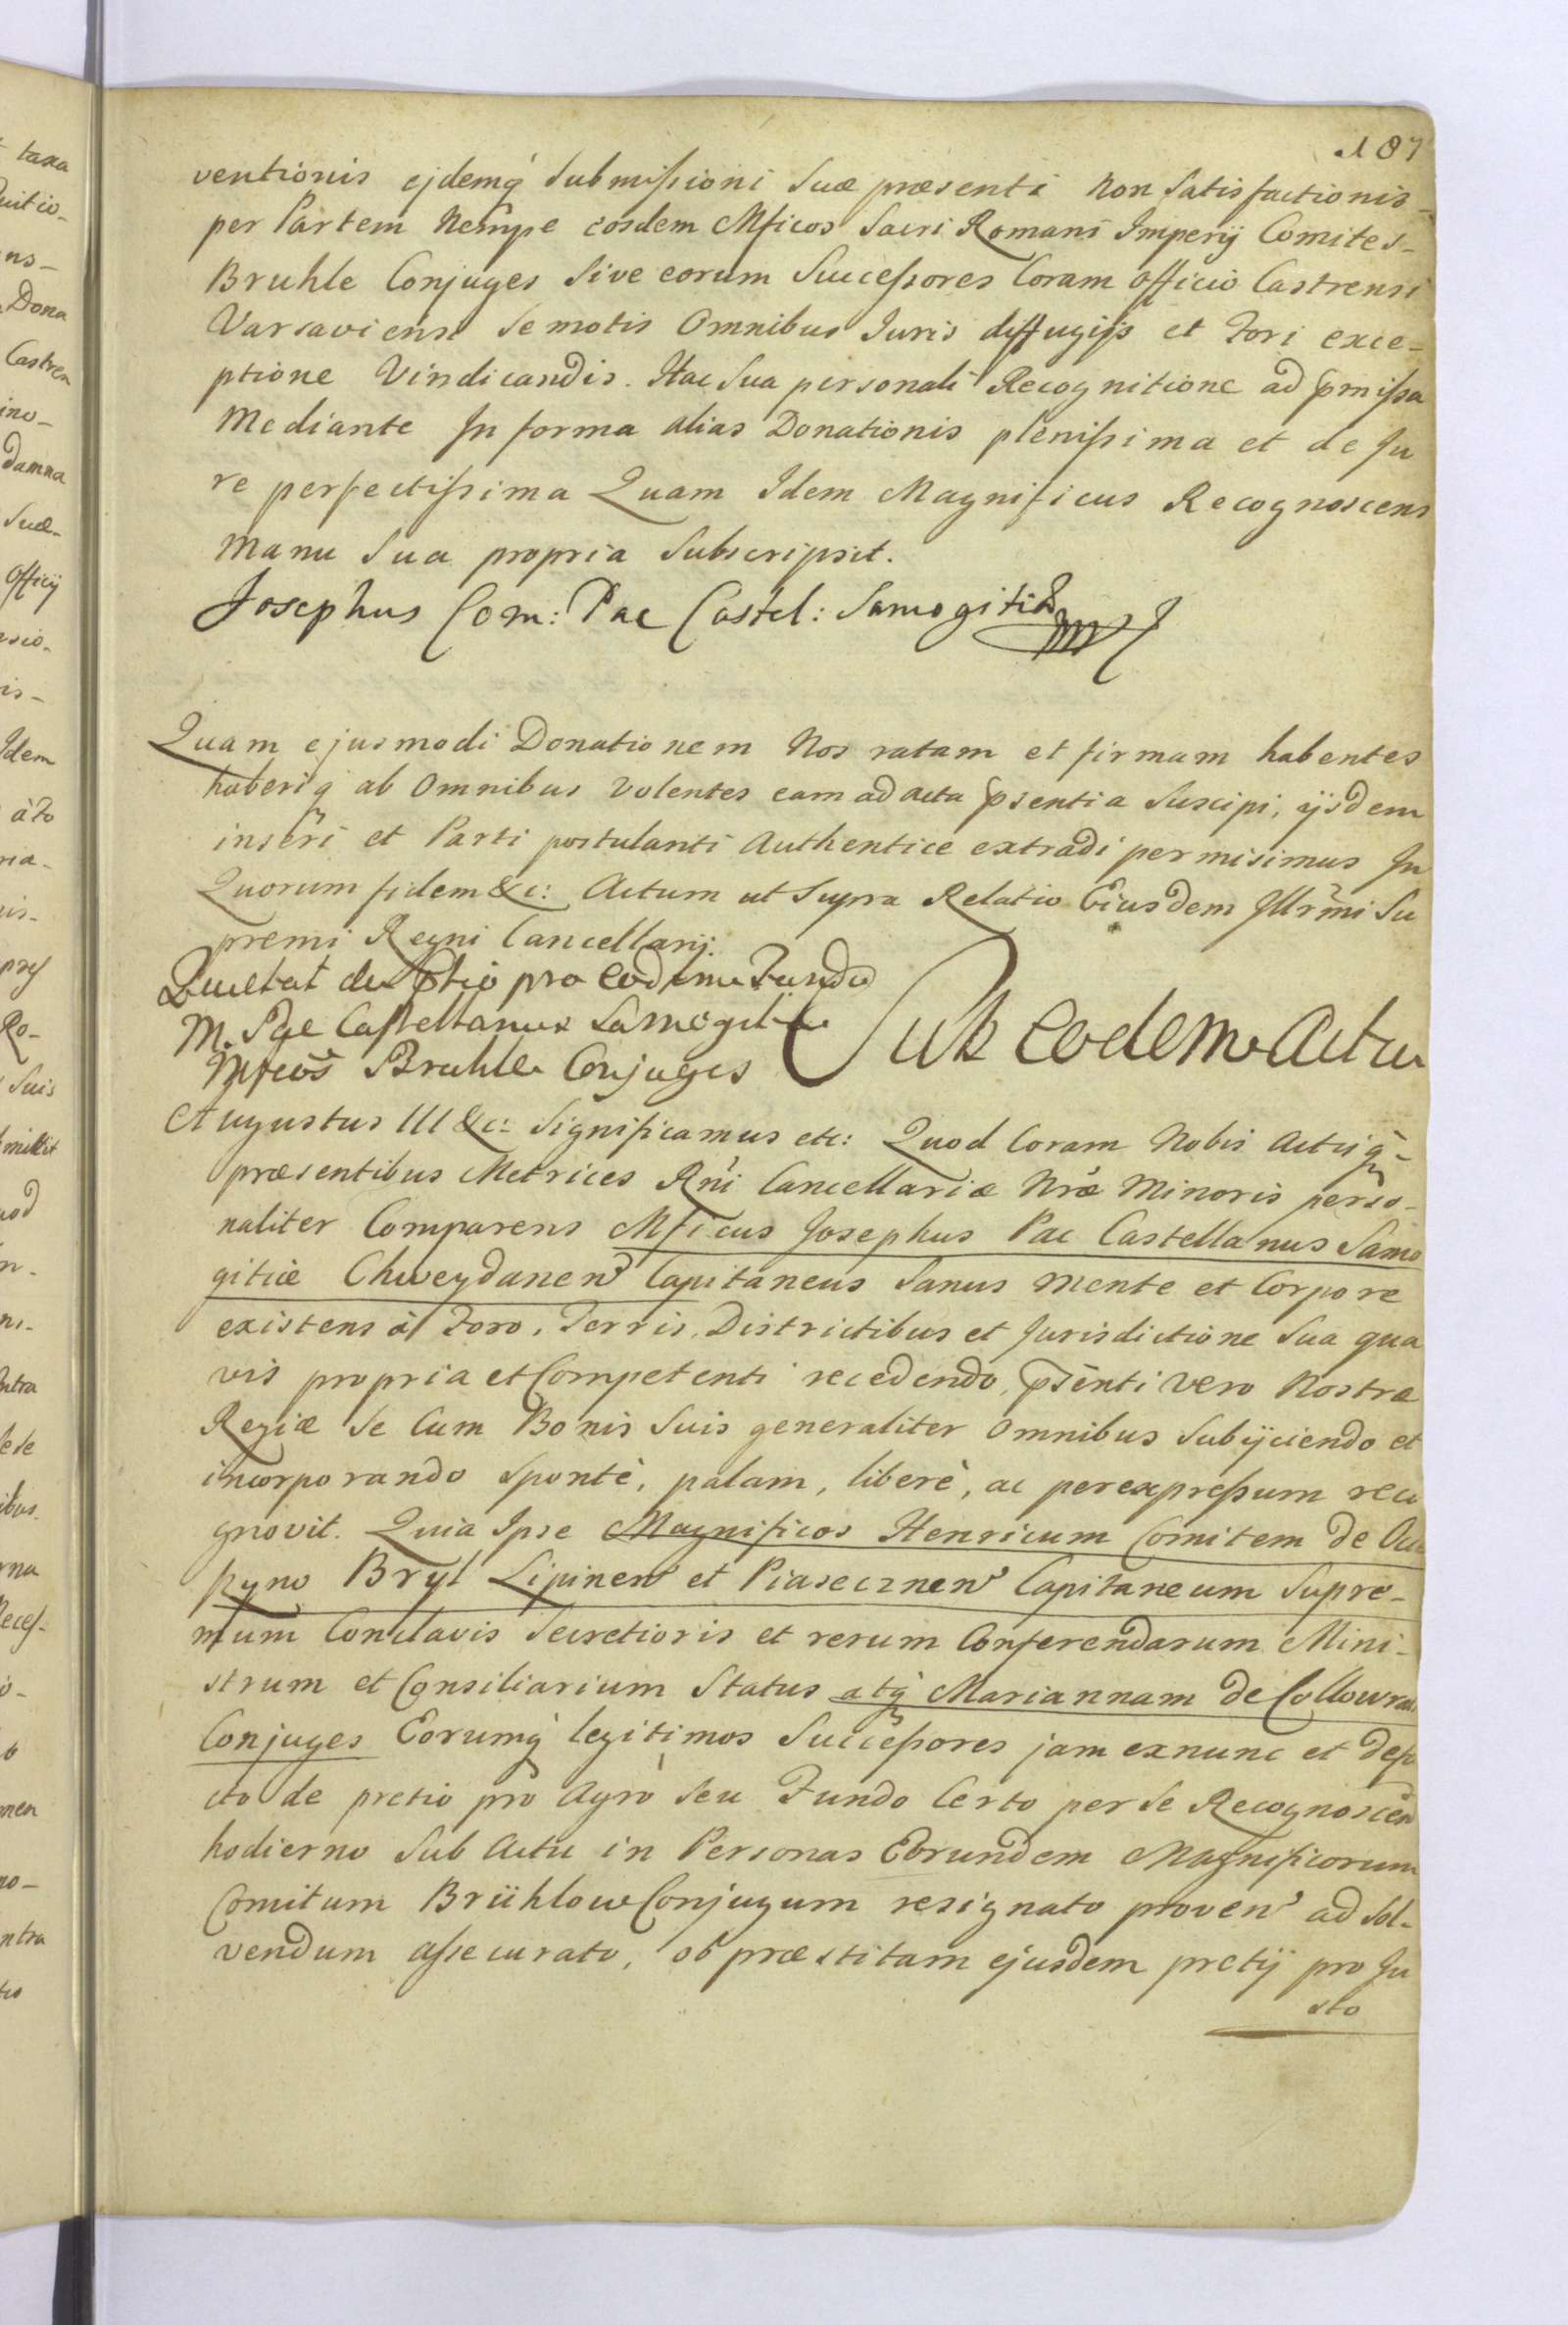 187
ventionis ejdemq́ Submissioni Suæ præsenti non Satisfactionis
per Partem Nempe eosdem Mficos Sacri Romani Imperij Comites
Bruhle Conjuges Sive eorum Successores Coram officio Castrensi
Varsaviensi Semotis Omnibus Juris diffugijs et Fori exce-
ptione Vindicandis. Hac Sua personali Recognitione ad pmissa
Mediante In forma alias Donationis plenissima et de Ju
re perfectissima Quam Idem Magnificus Recognoscens
Manu Sua propria Subscripsit.
Josephus Com: Pac Castel: Samogitiæ
Quam ejusmodi Donationem Nos ratam et firmam habentes
haberiq́ ab Omnibus volentes eam ad acta psentia Suscipi, ijsdem
inseri et Parti postulanti Authentice extradi permisimus In
Quorum fidem &c: Actum ut Supra Relatio Eiusdem Illrm̃i Su
premi Regni Cancellarij.
Quietat de ptio pro eodem Fundo
M. Pac Castellanus Samogitiæ
Mficos Bruhle Conjuges
Sub eodem Actu
Augustus III &c: Significamus etc: Quod Coram Nobis Actisq́-
præsentibus Metrices Rni Cancellariæ Nræ Minoris perso-
naliter Comparens Mficus Josephus Pac Castellanus Samo
gitiæ Chweydanen Capitaneus Sanus mente et Corpore
existens à Foro, Terris, Districtibus et Jurisdictione Sua qua
vis propria et Competenti recedendo, psenti vero Nostræ
Regiæ Se Cum Bonis Suis generaliter Omnibus Subijciendo et
incorporando Sponté, palam, liberè, ac per expressum reco
gnovit. Quia Ipse Magnificos Henricum Comitem de Ocie
szyno Bryl Lipinen et Piasecznen Capitaneum Supre-
mum Conclavis Secretioris et rerum Conferendarum Mini-
strum et Consiliarium Status atq́ Mariannam de Collowrat
Conjuges Eorumq́ legitimos Successores jam exnunc et defa
cto de pretio pro Agro Seu Fundo Certo per Se Recognoscen
hodierno Sub Actu in Personas Eorundem Magnificorum
Comitum Brühlow Conjugum resignato proven ad Sol-
vendum assecurato, ob præstitam ejusdem pretij pro Ju
sto